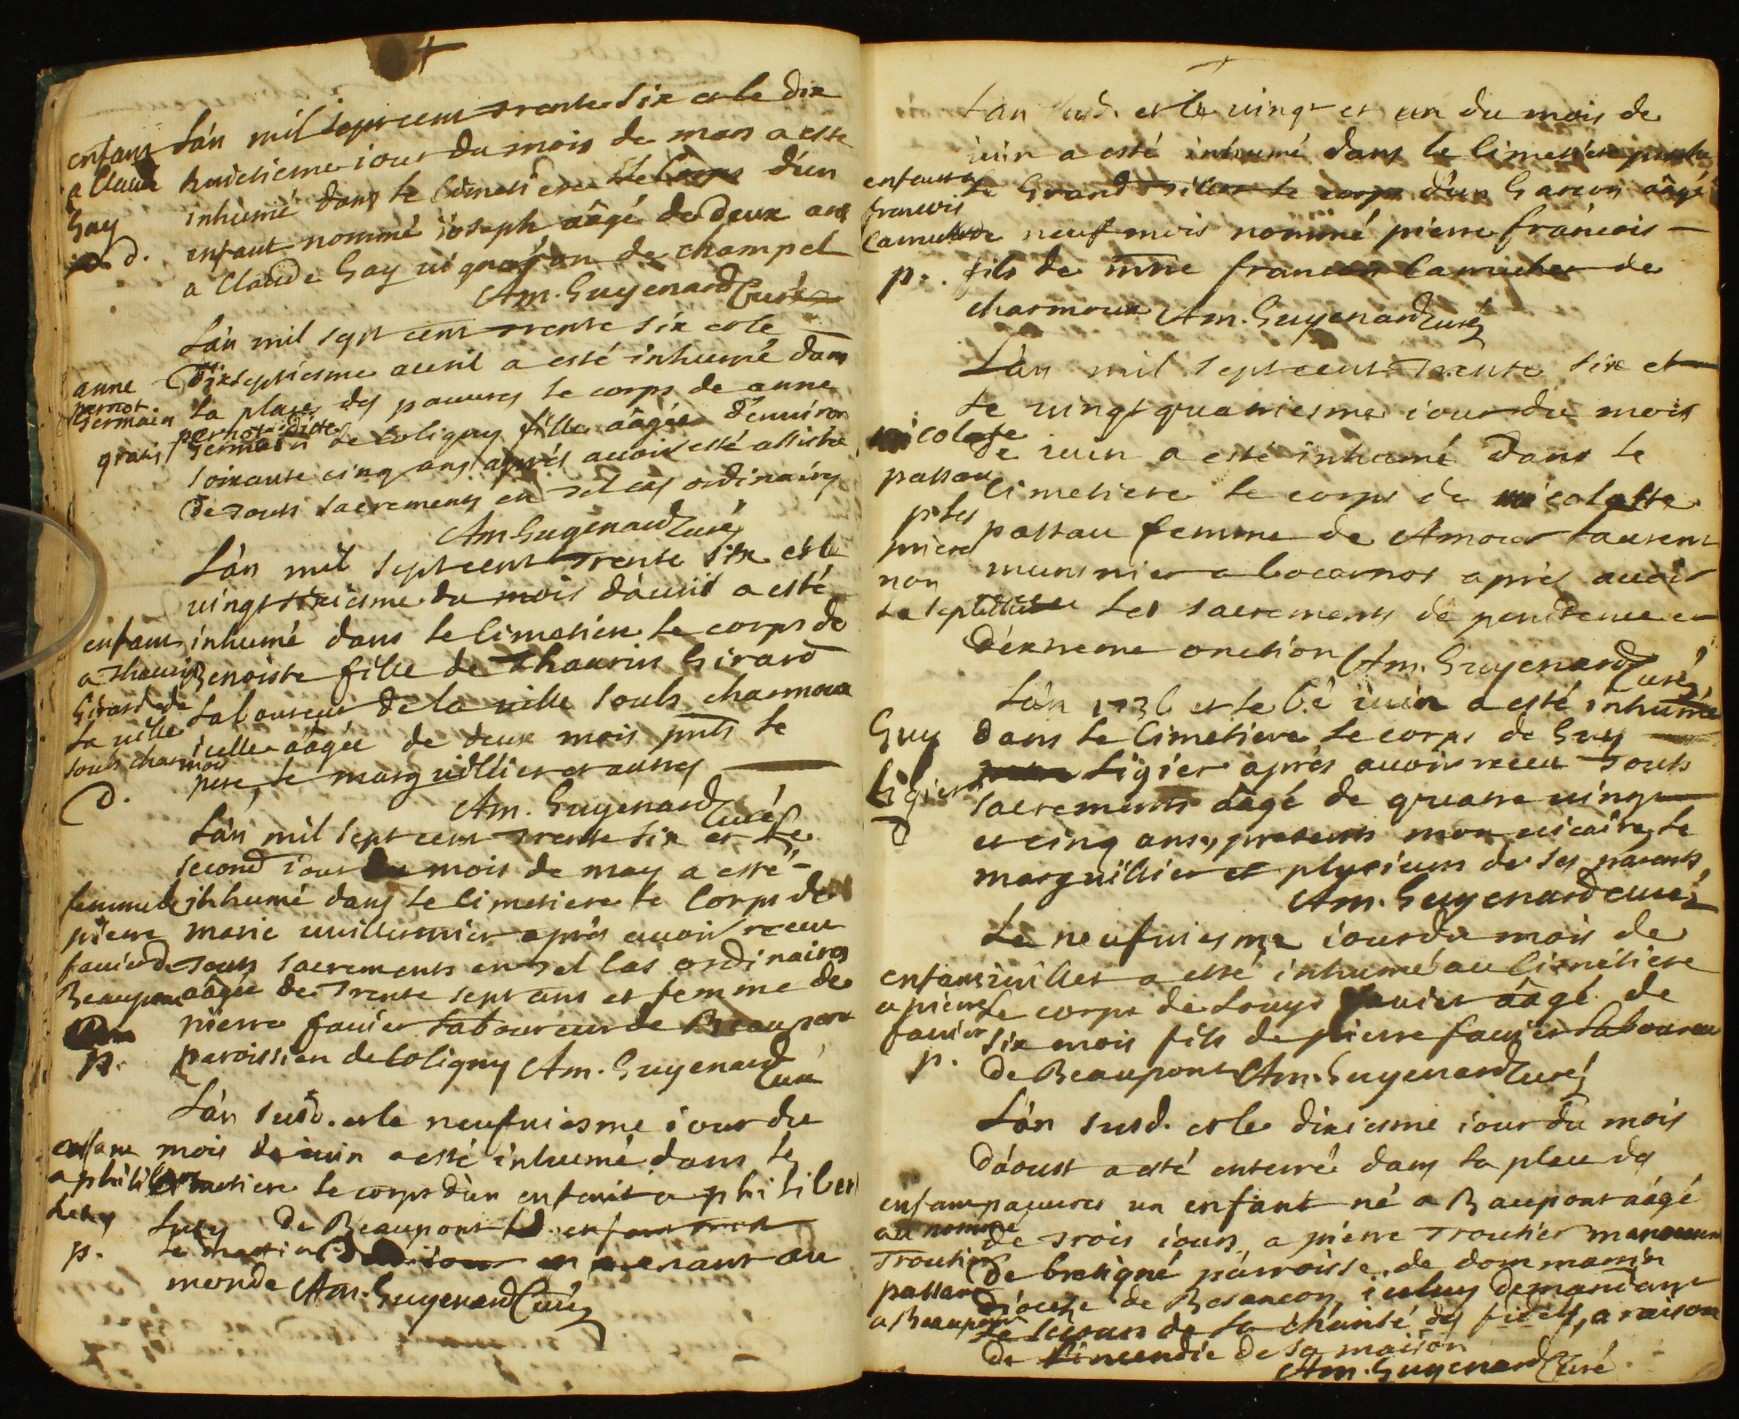 enfant
a Claude
Gay
d.
L'an mil sept cent trente six et le dix
huictiesme iour du mois de mars a esté
inhumé dans le cimetiere le corps d'un
enfant nommé ioseph aâgé de deux ans
a Claude Gay uigneron de champel
Am. Guyenard Curé
anne
pernot
Germain
gratis
L'an mil sept cent trente six et le
dixseptiesme auril a esté inhumé dans
la place des pauures le corps de anne
pernot ditte
Germain de Coligny fille aâgée d'enuiron
soixante cinq ans après auoir esté assistée
de touts sacrements en tel cas ordinaires
Am Guyenard Curé
enfant
a Thaurin
Girard de
la uille
soubs charmoux
d.
L'an mil sept cent trente six et le
uingt sixiesme du mois d'auril a esté
inhumé dans le cimetiere le corps de
Benoiste fille de Thaurin Girard
laboureur de la uille soubs charmoux
icelle aâgée de deux mois pnts le
pere, le marguillier et autres
Am. Guyenard Curé
femme de
pierre
fauier de
Beaupont
p.
L'an mil sept cent trente six et le
second iour du mois de may a esté
inhumé dans le cimetiere le corps de
marie uuillermier après auoir receu
touts sacrements en tel cas ordinaires
aâgée de trente sept ans et femme de
pierre fauier laboureur de Beaupont
paroissien de Coligny Am. Guyenard
Curé
enfant
a philibert
p.
L'an susd. et le neufuiesme iour du
mois de iuin a esté inhumé dans le
cimetiere le corps d'un enfant a philibert
de Beaupont
le
en uenant au
monde Am. Guyenard Curé
enfant a
francois
Camuset
p.
L'an susd. et le uingt et un du mois de
iuin a esté inhumé dans le cimetiere
le corps d'un Garcon aâgé
de neuf mois nommé pierre francois
fils de francois de
charmoux Am. Guyenard Curé
nicolaste
passau
ptes
priere
non
la septulture
L'an mil sept cent trente six et
le uingt quatriesme iour du mois
de iuin a esté inhumé dans le
cimetiere le corps de nicolaste
passau femme de Amour Laurent
munsnier a bocarnos après auoir
les sacrements de penitence et
d'extreme onction Am. Guyenard
Curé
Guy
ligier
d
L'an 1736 et le 6e iuin a esté inhumé
dans le cimetiere le corps de Guy
ligier après auoir receu touts
sacrements aâgé de quatre uingt
et cinq ans, presents mon uicaire, le
marguillier et plusieurs de ses parents,
Am. Guyenard curé
enfant
a pierre
fauier
p.
Le neufuiesme iour du mois de
iuillet a esté inhumé au cimetiere
le corps de Louys fauier aâgé de
six mois fils de pierre fauier laboureur
de Beaupont Am. Guyenard Curé
enfant
au nommé
Troutier
passant
a Beaupont
L'an susd. et le dixiesme iour du mois
d'aoust a esté enterré dans la place des
pauures un enfant né a Beaupont aâgé
de trois iours, a pierre Troutier manouurier
de bretigné parroisse de dommartin
diocese de Besancon, iceluy demandant
le secours de la charité des fidels, a raison
de l'incendie de sa maison
Am. Guyenard Curé